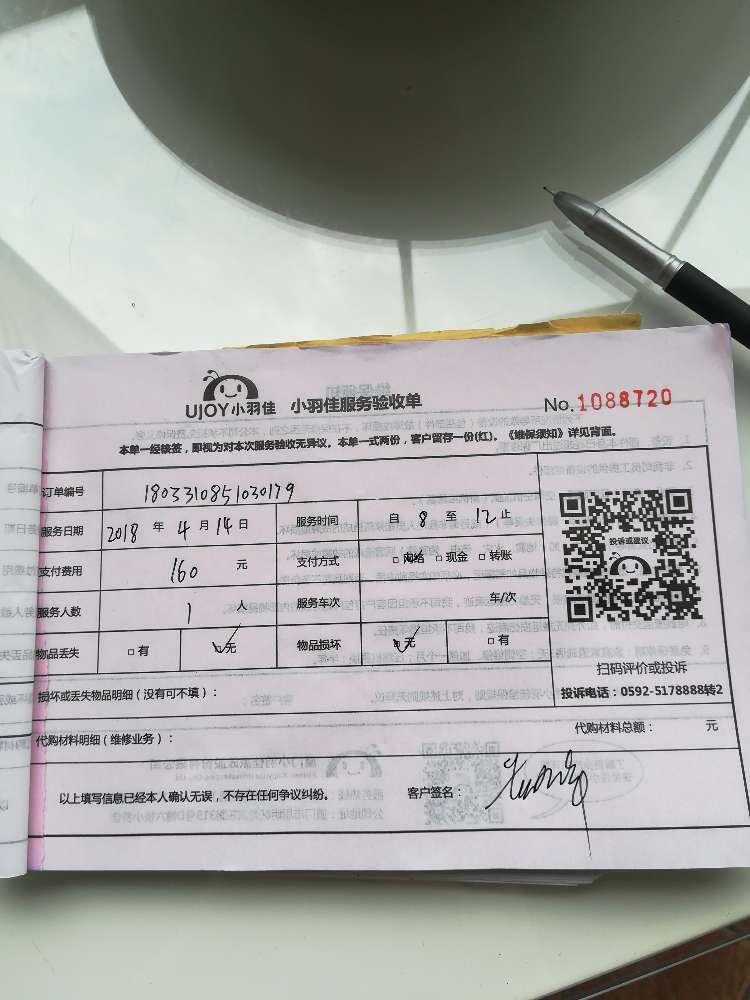 UJOY小羽佳 小羽佳服务验收单 No.1088720
本单一经核签，即视为对本次服务验收无异议。本单一式两份，客户留存一份(红)。《维保须知》详见背面。
订单编号 1803310851030179
服务日期 2018 年 4 月 14 日 服务时间 自 8 至 12 止
支付费用 160 元 支付方式 □网络 □现金 □转账
服务人数 1 人 服务车次 车/次
物品丢失 □有 □无 物品损坏 □无 □有
投诉或建议
扫码评价或投诉
投诉电话：0592-5178888转2
损坏或丢失物品明细（没有可不填）：
代购材料明细（维修业务）： 代购材料总额： 元
以上填写信息已经本人确认无误，不存在任何争议纠纷。 客户签名：